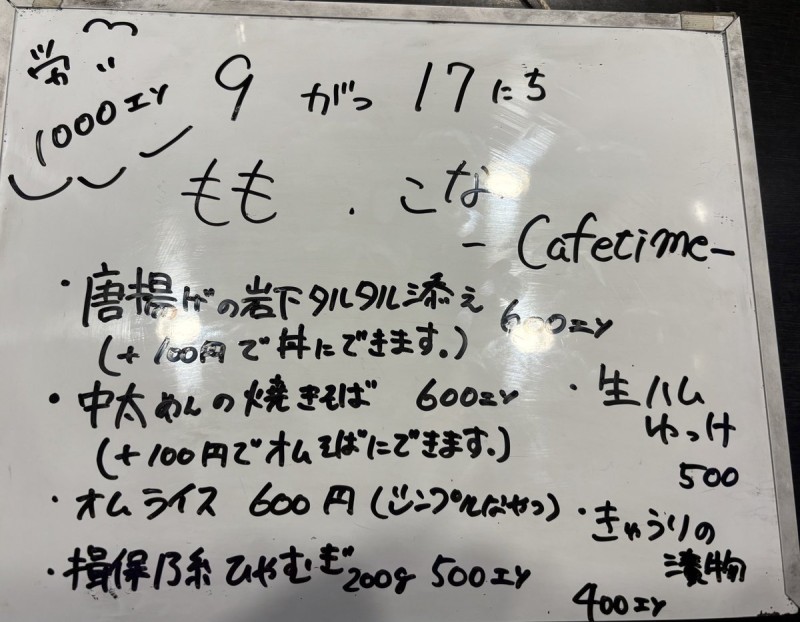 1000エン
9 がつ 17 にち
もも . こな
- Cafetime-
・唐揚げの岩下タルタル添え 600エン
(+100円で丼にできます。)
・中太めんの焼きそば 600エン
(+100円でオムそばにできます。)
・オムライス 600円 (シンプルなやつ)
・揖保乃糸ひやむぎ 200g 500エン
・生ハム
ゆっけ
500
・きゅうりの
漬物
400エン